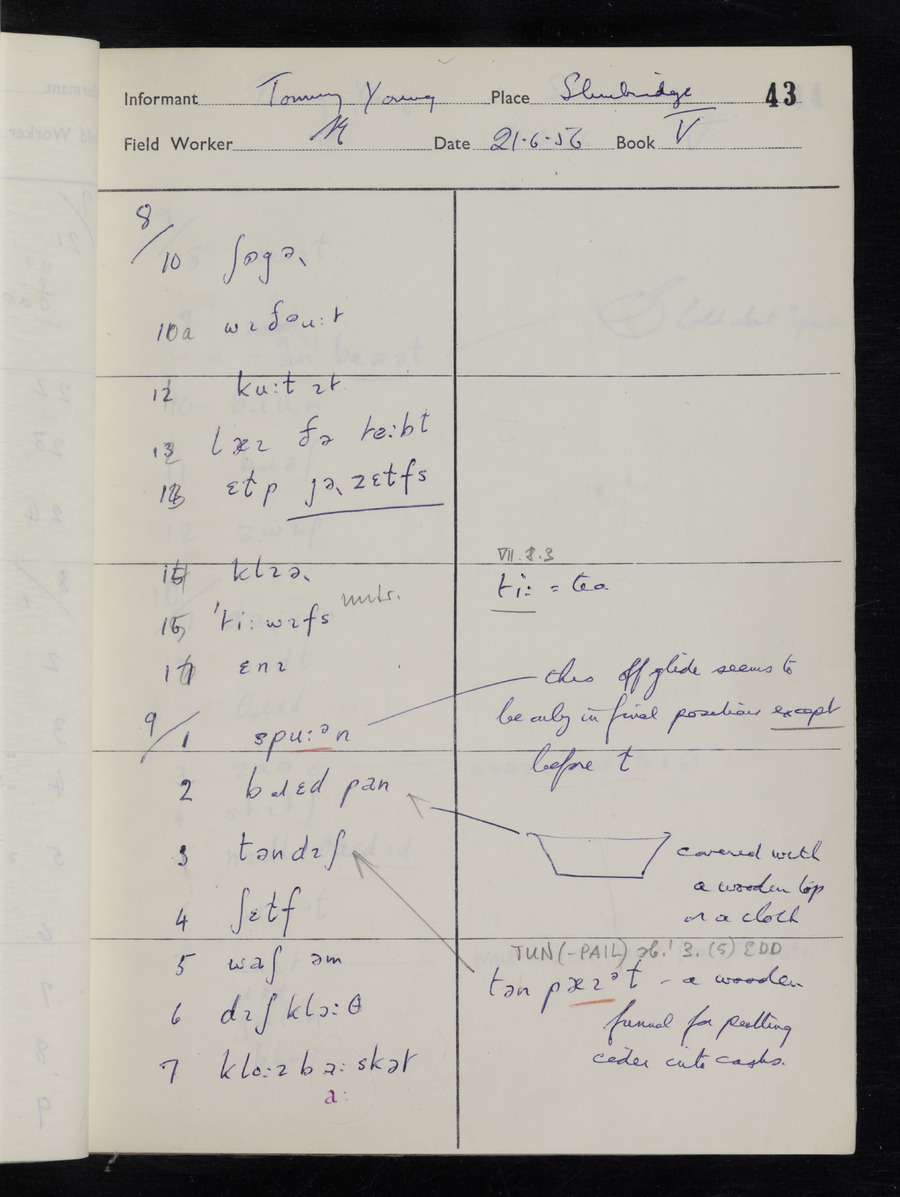 Informant Tommy Young Place Slimbridge 43
Field Worker Date 21-6-56 Book V
8/
10 ʃəgə˞
10a wɪðəu:t
12 ku:t ɪt
13 ðə
13 jə˞zɛɫfs
15 klɪə˞
VII.8.3
ti: = tea
16 'ti:wɪfs
17 ɛnɪ
this off glide seems to
be only in final positions except
before ɫ
9/1 spu:ᵊn
2 pan
3 təndɪʃ
4 ʃɛɫf
covered with
a wooden top
or a cloth
5 waʃ əm
6 dɪʃklɔ:θ
7 klo:zba:skət
a:
TUN(-PAIL) sb.¹ 3. (5) EDD
tən pæɪᵊɫ - a wooden
funnel for putting
cider into casks.